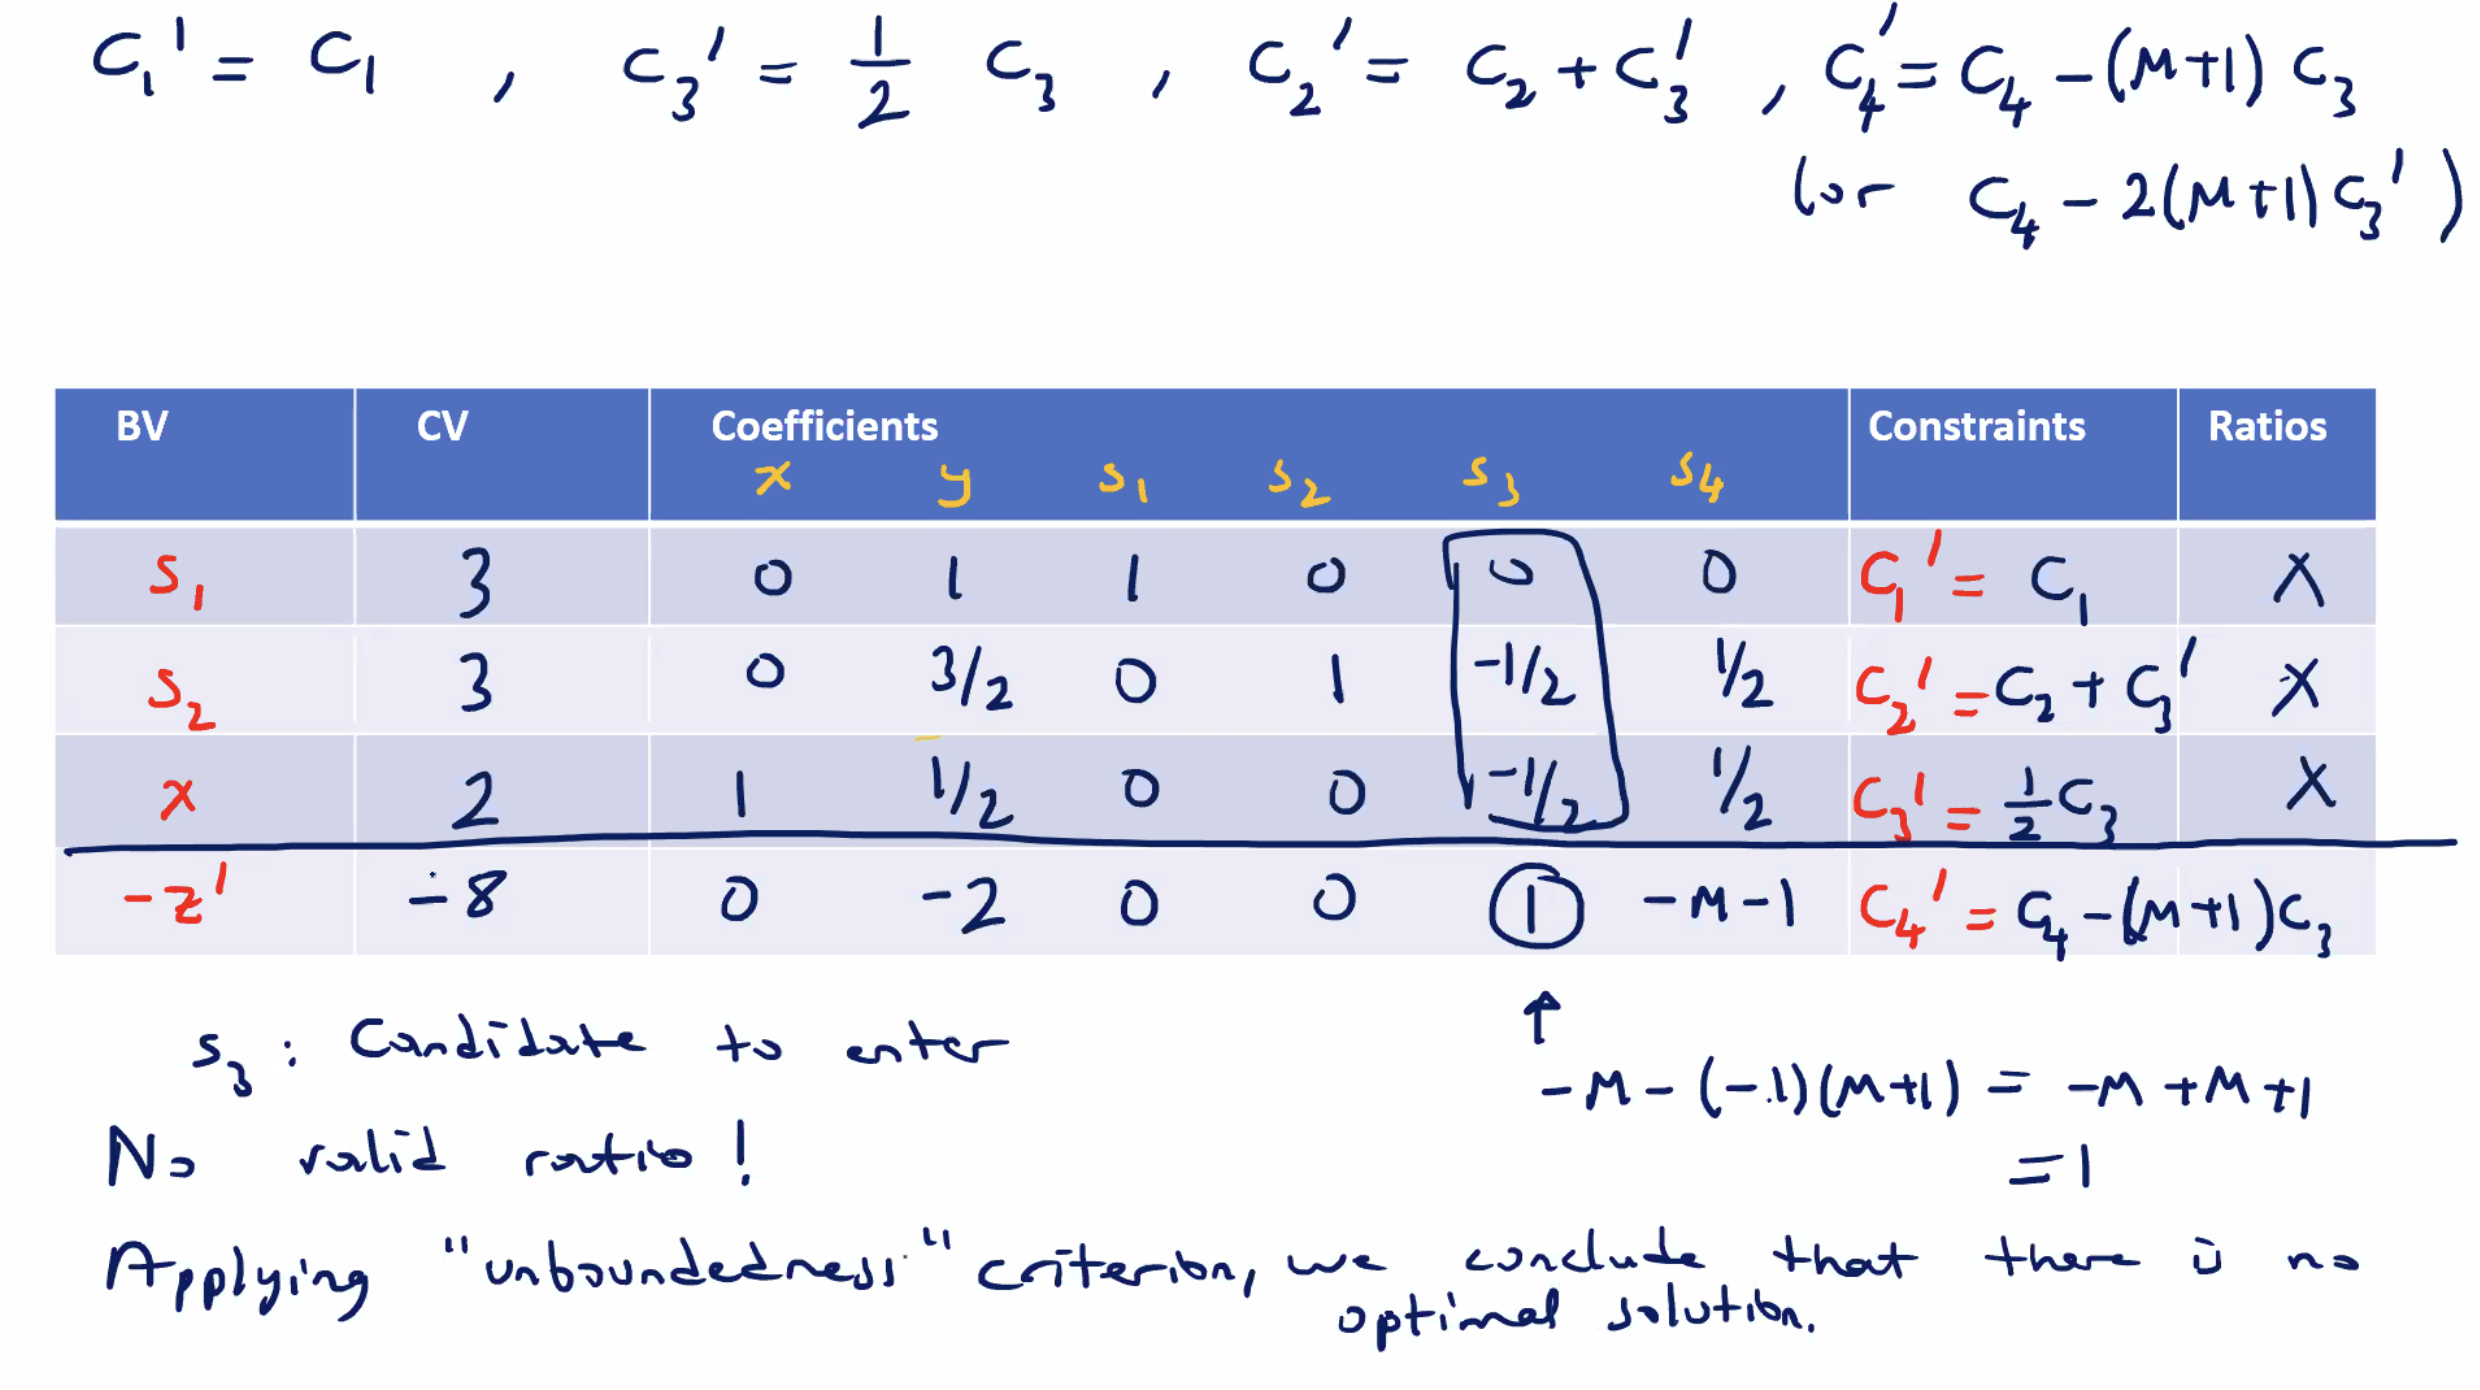 C₁' = C₁ , C₃' = 1/2 C₃ , C₂' = C₂ + C₃' , C₄' = C₄ - (M+1) C₃
(or C₄ - 2(M+1) C₃')
BV CV Coefficients Constraints Ratios
x y s₁ s₂ s₃ s₄
s₁ 3 0 1 1 0 0 0 C₁' = C₁ X
s₂ 3 0 3/2 0 1 -1/2 1/2 C₂' = C₂ + C₃' X
x 2 1 1/2 0 0 -1/2 1/2 C₃' = 1/2 C₃ X
-z' -8 0 -2 0 0 1 -M-1 C₄' = C₄ - (M+1)C₃
↑
s₃ : Candidate to enter
-M - (-1)(M+1) = -M + M + 1
No valid ratio!
= 1
Applying "unboundedness" criterion, we conclude that there is no
optimal solution.